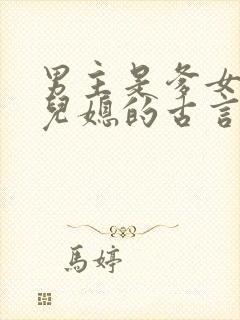 男主是爹女
兒媳的古言
馬婷